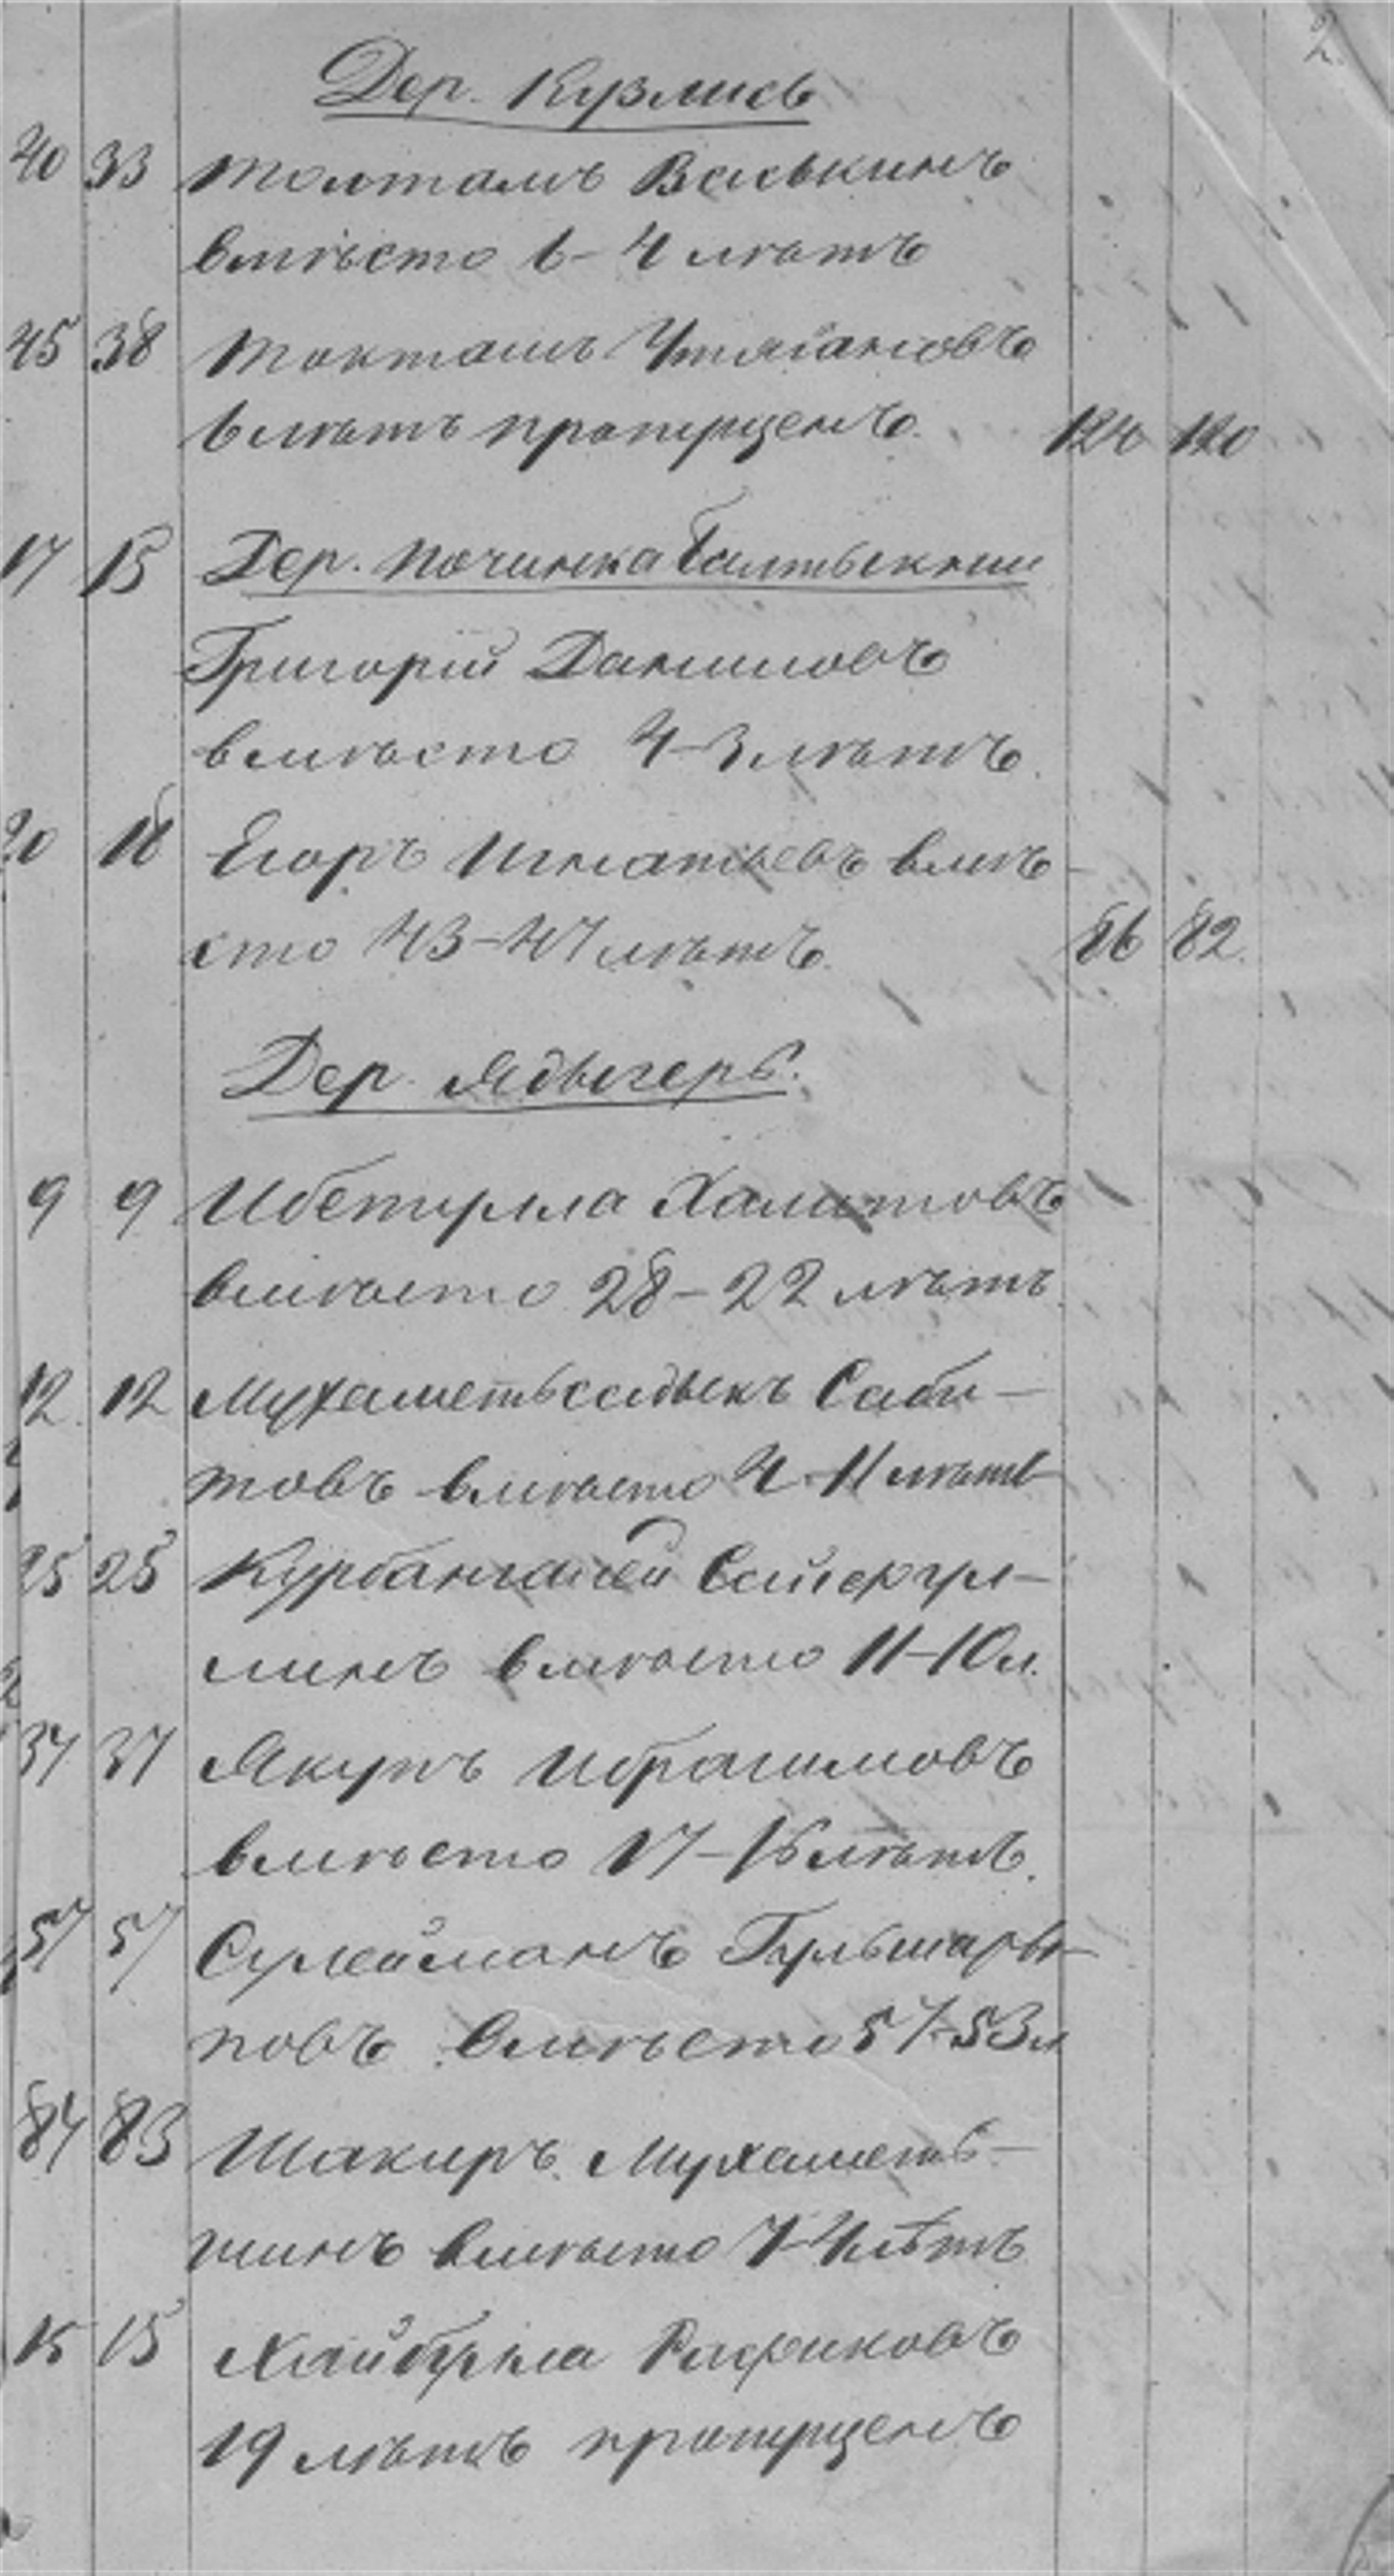 2.
Дер. Кузмись
40 33 Толтамъ Васькинъ
вмѣсто 6-4 лѣтъ
45 38 Токташъ
6 лѣтъ пропущенъ. 124 120
17 15 Дер. Починка Балтыкнии
Григорій Даниловъ
вмѣсто 4-3 лѣтъ.
20 18 Егоръ Игнатьевъ вмѣ-
сто 43-47 лѣтъ. 86 82.
Дер. Ядыгерь.
9 9 Ибетулла Халитовъ
вмѣсто 28-22 лѣтъ.
12. 12 Мухаметьсадыкъ Саби-
товъ вмѣсто 4-11 лѣтъ
25 25 Курбангалей
линъ вмѣсто 11-10 л.
37 37 Якупъ Ибрагимовъ
вмѣсто 17-16 лѣтъ.
57 57 Сулейманъ Гульшары-
повъ вмѣсто 57-53 л
84 83 Шакиръ Мухаметь-
шинъ вмѣсто 7-4 лѣтъ
15 15 Хайбулла Рафиковъ
19 лѣтъ пропущенъ